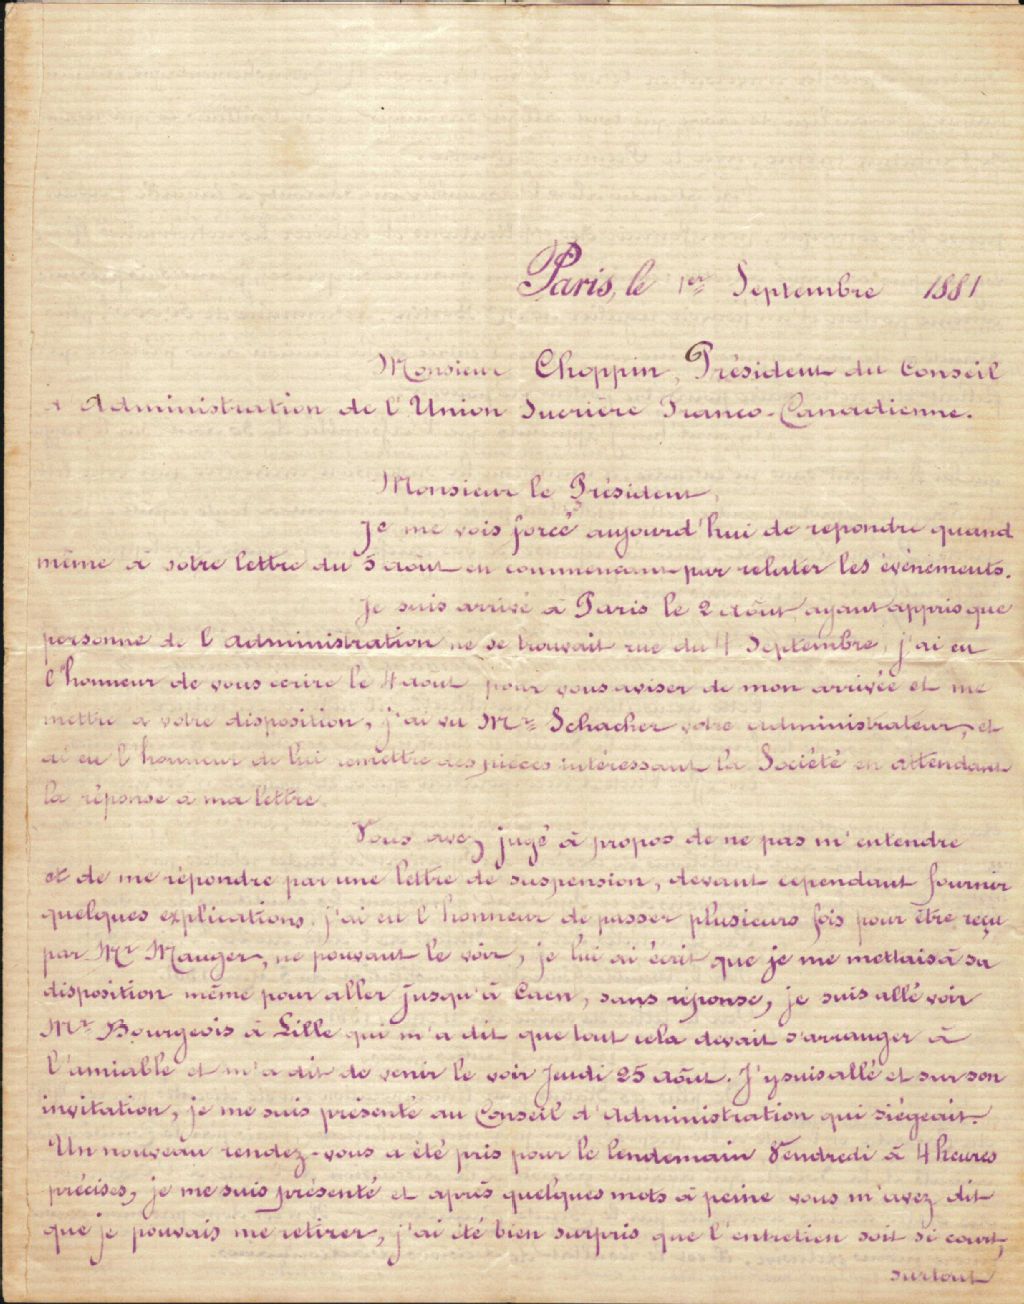 Paris, le 1er Septembre 1881
Monsieur Choppin, Président du Conseil
d'Administration de l'Union Sucrière Franco-Canadienne.
Monsieur le Président,
Je me vois forcé aujourd'hui de repondre quand
même à votre lettre du 5 août en commençant par relater les évènements.
Je suis arrivé à Paris le 2 août, ayant appris que
personne de l'administration ne se trouvait rue du 4 Septembre, j'ai eu
l'honneur de vous écrire le 4 août pour vous aviser de mon arrivée et me
mettre à votre disposition, j'ai vu Mr Schacher votre administrateur, et
ai eu l'honneur de lui remettre des pièces intéressant la Société en attendant
la réponse à ma lettre.
Vous avez jugé à propos de ne pas m'entendre
et de me répondre par une lettre de suspension, devant cependant fournir
quelques explications, j'ai eu l'honneur de passer plusieurs fois pour être reçu
par Mr Mauger, ne pouvant le voir, je lui ai écrit que je me mettais à sa
disposition même pour aller jusqu'à Caen, sans réponse, je suis allé voir
Mr Bourgeois à Lille qui m'a dit que tout cela devait s'arranger à
l'amiable et m'a dit de venir le voir Jeudi 25 août. J'y suis allé et sur son
invitation, je me suis présenté au Conseil d'Administration qui siégeait.
Un nouveau rendez-vous a été pris pour le lendemain Vendredi à 4 heures
précises, je me suis présenté et après quelques mots à peine vous m'avez dit
que je pouvais me retirer, j'ai été bien surpris que l'entretien soit si court,
surtout